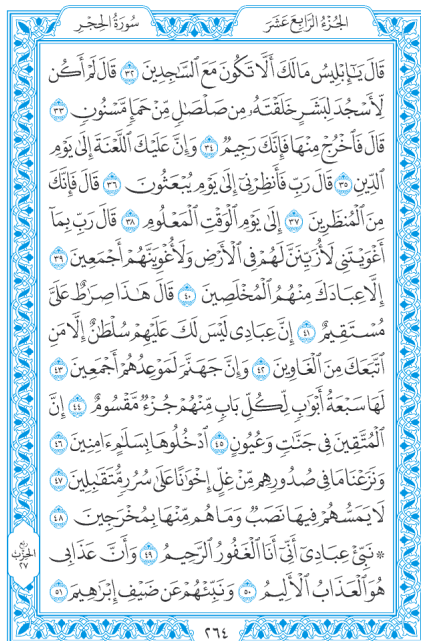 الجُزْءُ الرَّابِعَ عَشَرَ
سُورَةُ الحِجْرِ
قَالَ يَٰٓإِبْلِيسُ مَالَكَ أَلَّا تَكُونَ مَعَ ٱلسَّٰجِدِينَ ٣٢ قَالَ لَمْ أَكُن
لِّأَسْجُدَ لِبَشَرٍ خَلَقْتَهُۥ مِن صَلْصَٰلٍ مِّنْ حَمَإٍ مَّسْنُونٍ ٣٣
قَالَ فَٱخْرُجْ مِنْهَا فَإِنَّكَ رَجِيمٌ ٣٤ وَإِنَّ عَلَيْكَ ٱللَّعْنَةَ إِلَىٰ يَوْمِ
ٱلدِّينِ ٣٥ قَالَ رَبِّ فَأَنظِرْنِىٓ إِلَىٰ يَوْمِ يُبْعَثُونَ ٣٦ قَالَ فَإِنَّكَ
مِنَ ٱلْمُنظَرِينَ ٣٧ إِلَىٰ يَوْمِ ٱلْوَقْتِ ٱلْمَعْلُومِ ٣٨ قَالَ رَبِّ بِمَآ
أَغْوَيْتَنِى لَأُزَيِّنَنَّ لَهُمْ فِى ٱلْأَرْضِ وَلَأُغْوِيَنَّهُمْ أَجْمَعِينَ ٣٩
إِلَّا عِبَادَكَ مِنْهُمُ ٱلْمُخْلَصِينَ ٤٠ قَالَ هَٰذَا صِرَٰطٌ عَلَىَّ
مُسْتَقِيمٌ ٤١ إِنَّ عِبَادِى لَيْسَ لَكَ عَلَيْهِمْ سُلْطَٰنٌ إِلَّا مَنِ
ٱتَّبَعَكَ مِنَ ٱلْغَاوِينَ ٤٢ وَإِنَّ جَهَنَّمَ لَمَوْعِدُهُمْ أَجْمَعِينَ ٤٣
لَهَا سَبْعَةُ أَبْوَٰبٍ لِّكُلِّ بَابٍ مِّنْهُمْ جُزْءٌ مَّقْسُومٌ ٤٤ إِنَّ
ٱلْمُتَّقِينَ فِى جَنَّٰتٍ وَعُيُونٍ ٤٥ ٱدْخُلُوهَا بِسَلَٰمٍ ءَامِنِينَ ٤٦
وَنَزَعْنَا مَا فِى صُدُورِهِم مِّنْ غِلٍّ إِخْوَٰنًا عَلَىٰ سُرُرٍ مُّتَقَٰبِلِينَ ٤٧
لَا يَمَسُّهُمْ فِيهَا نَصَبٌ وَمَا هُم مِّنْهَا بِمُخْرَجِينَ ٤٨
۞ نَبِّئْ عِبَادِىٓ أَنِّىٓ أَنَا ٱلْغَفُورُ ٱلرَّحِيمُ ٤٩ وَأَنَّ عَذَابِى
هُوَ ٱلْعَذَابُ ٱلْأَلِيمُ ٥٠ وَنَبِّئْهُمْ عَن ضَيْفِ إِبْرَٰهِيمَ ٥١
ربع
الحزب
٢٧
٢٦٤